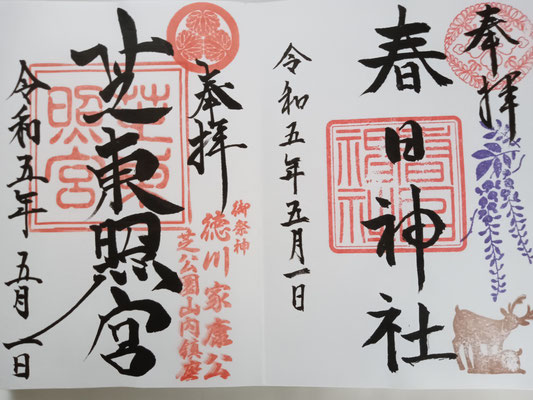 奉拝
春日神社
春日神社
令和五年五月一日
奉拝
芝東照宮
芝東照宮
御祭神
徳川家康公
芝公園山内鎮座
令和五年五月一日